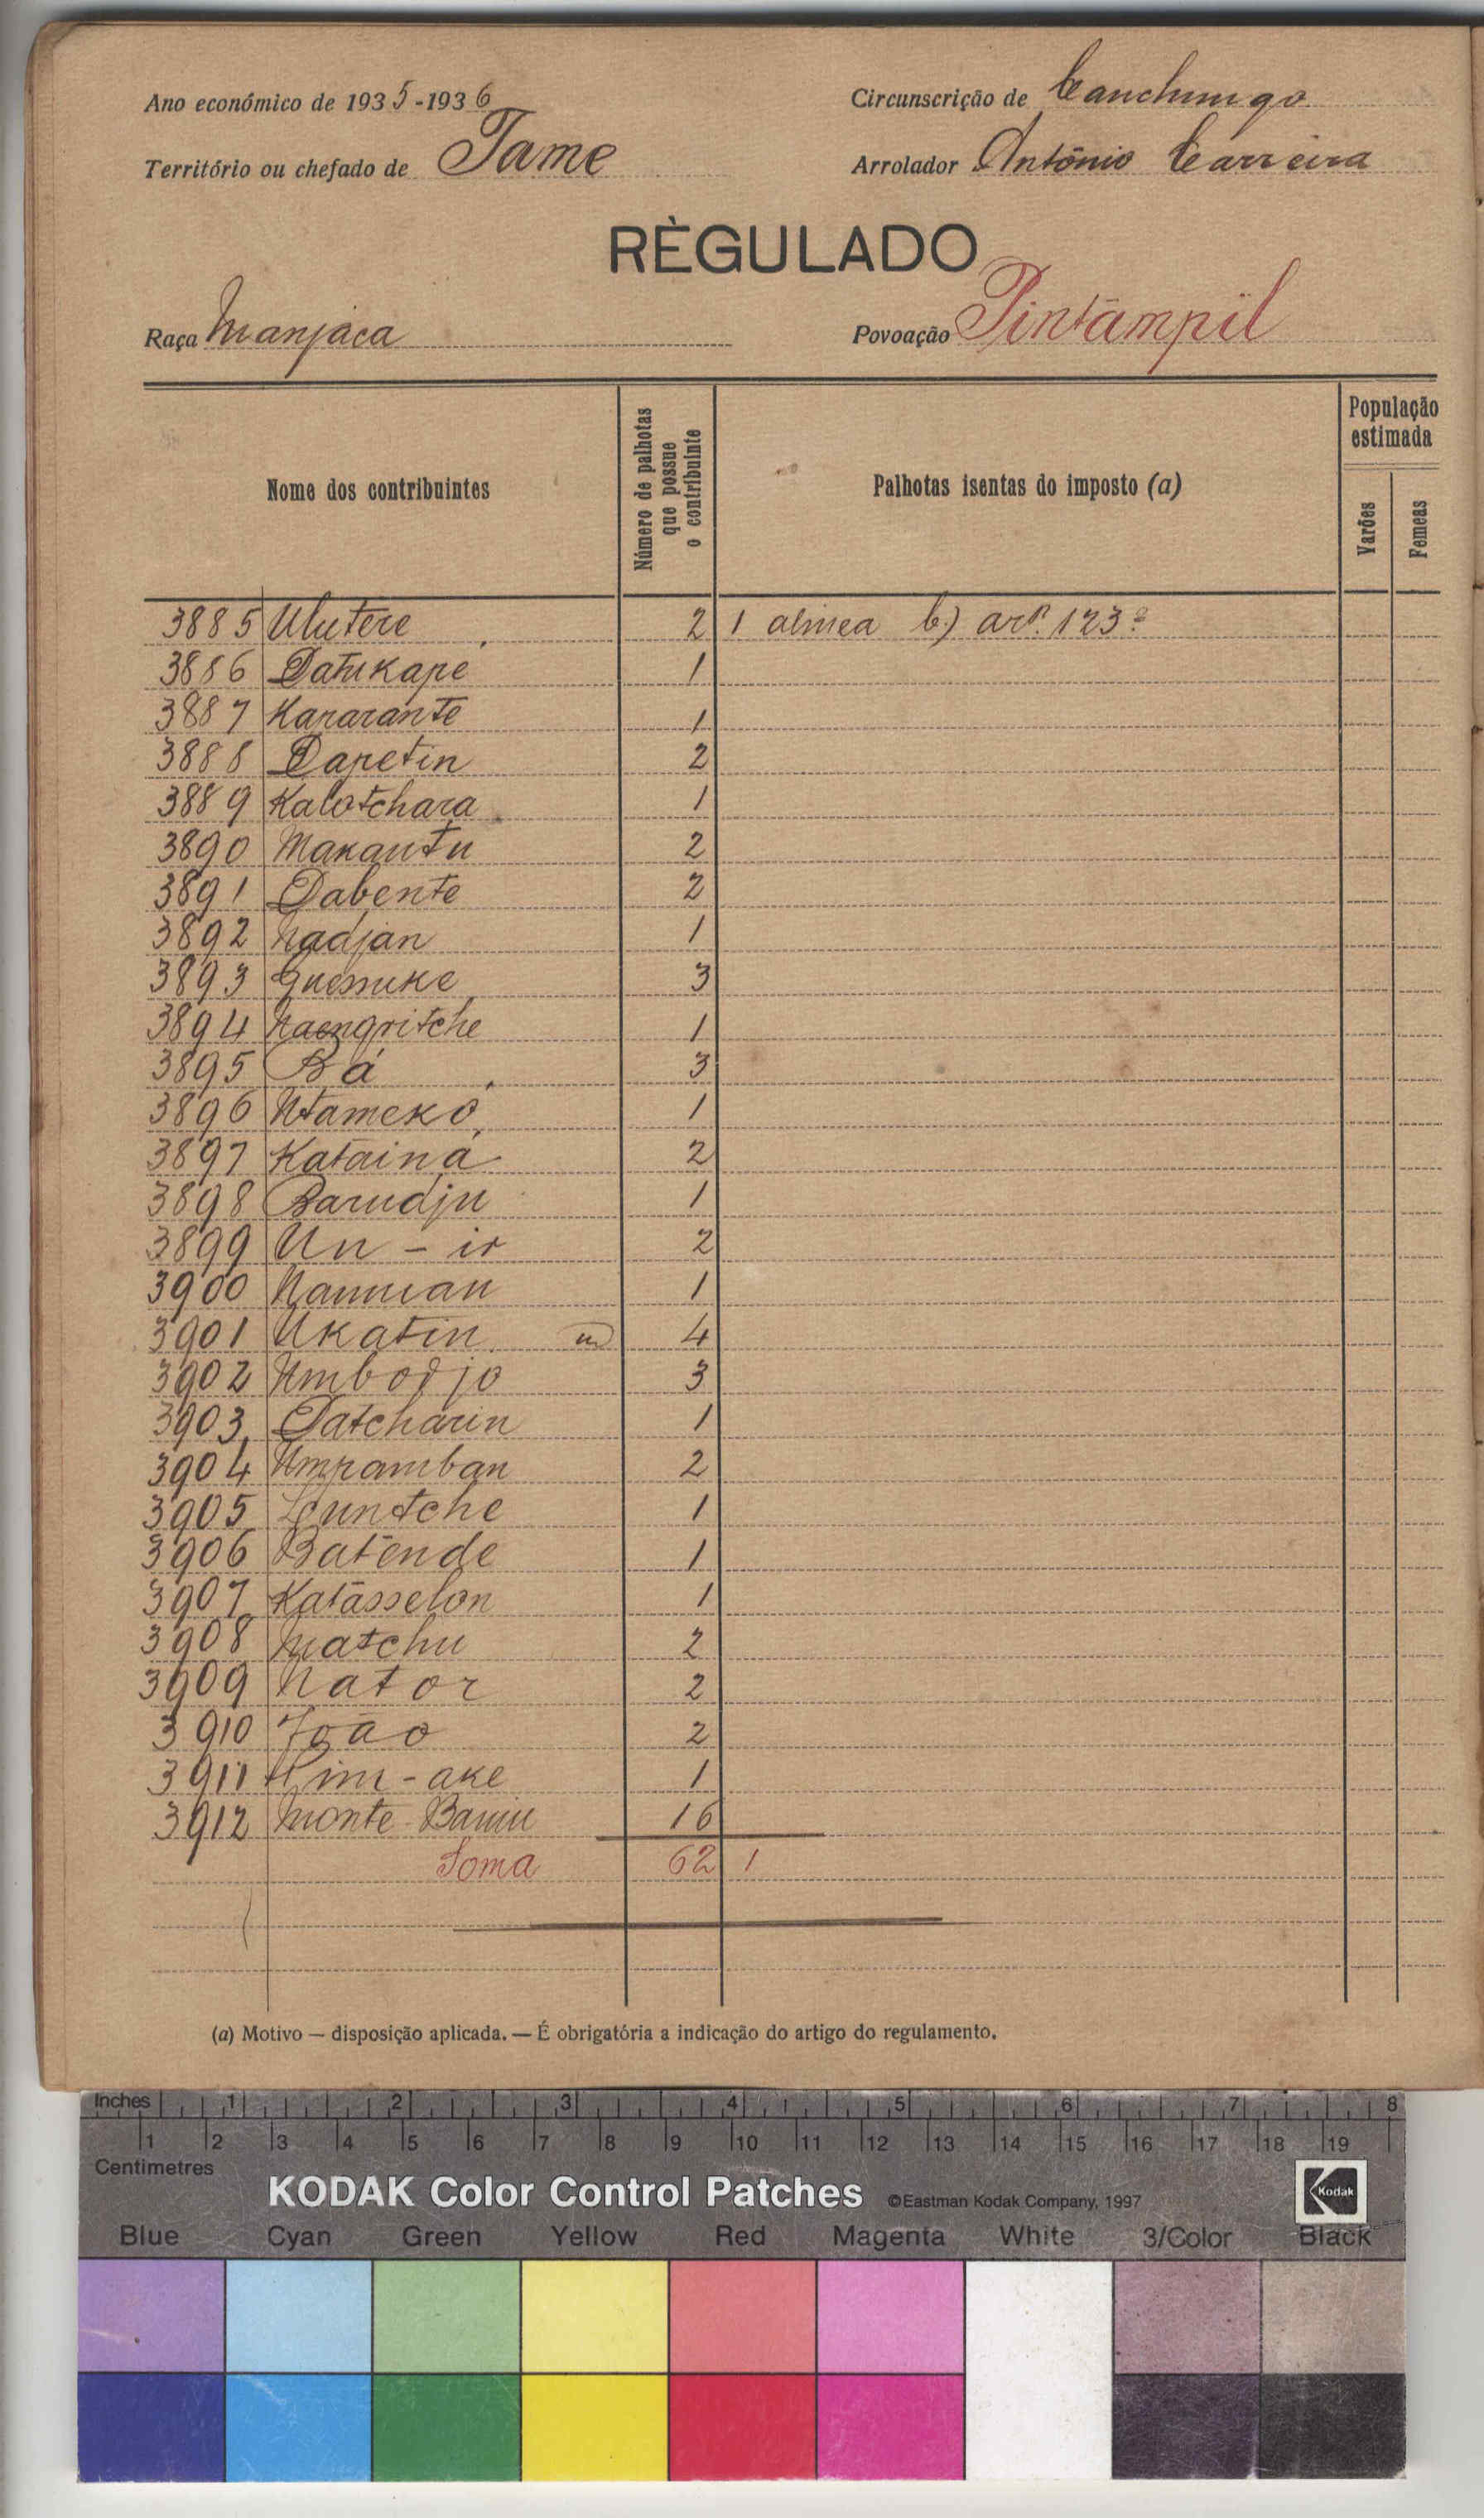 Ano económico de 1935-1936
Circunscrição de Canchungo
Território ou chefado de Tame
Arrolador António Carreira
RÈGULADO
Raça Manjaca
Povoação Pintampil
Nome dos contribuintes
Número de palhotas que possue o contribuinte
Palhotas isentas do imposto (a)
População estimada
Varões
Femeas
3885 Ulutere 2 1 alinea b) artº 123º
3886 Datukape 1
3887 Kararante 1
3888 Dapetin 2
3889 Kalotchara 1
3890 Makantu 2
3891 Dabente 2
3892 Nadjan 1
3893 3
3894 1
3895 Bá 3
3896 Ntamekó 1
3897 Katainá 2
3898 Barudju 1
3899 Un - ir 2
3900 1
3901 Ukatin 4
3902 3
3903 Datcharin 1
3904 Umpamban 2
3905 1
3906 Batènde 1
3907 Katásselon 1
3908 Matchu 2
3909 Nator 2
3910 João 2
3911 1
3912 Monte 16
Soma 62 1
(a) Motivo — disposição aplicada. — É obrigatória a indicação do artigo do regulamento.
Inches 1 2 3 4 5 6 7 8
1 2 3 4 5 6 7 8 9 10 11 12 13 14 15 16 17 18 19
Centimetres
KODAK Color Control Patches ©Eastman Kodak Company, 1997 Kodak
Blue Cyan Green Yellow Red Magenta White 3/Color Black